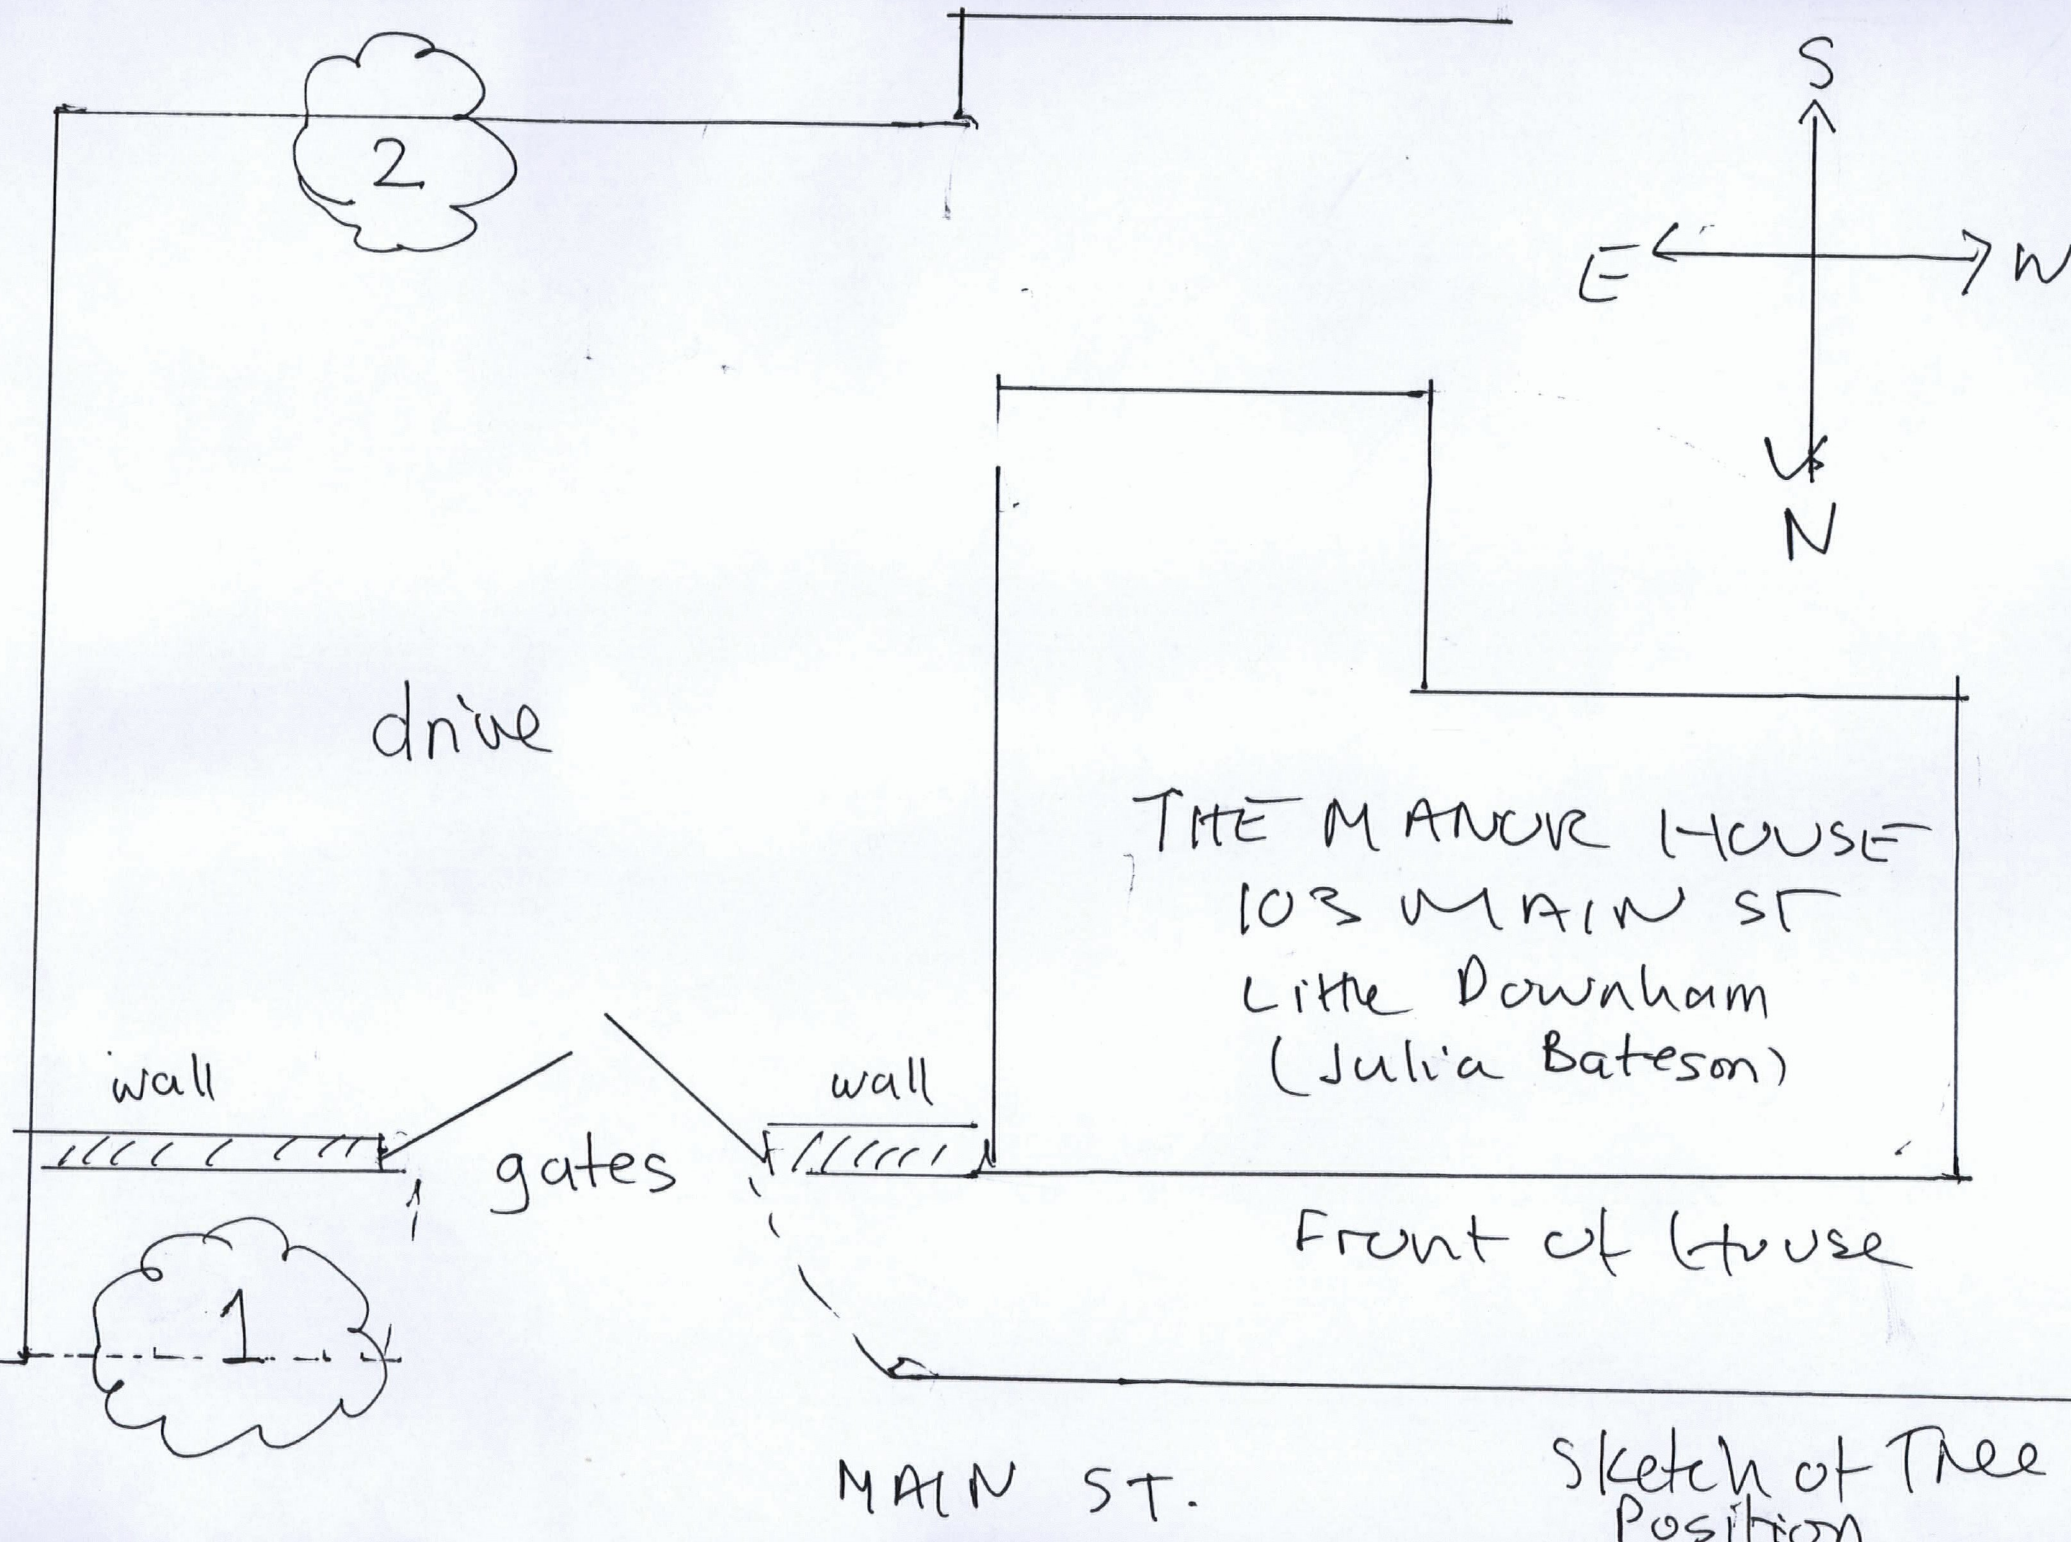 S
2
E
W
N
drive
THE MANOR HOUSE
103 MAIN ST
Little Downham
(Julia Bateson)
wall
wall
gates
Front of House
1
MAIN ST.
Sketch of Tree
Position